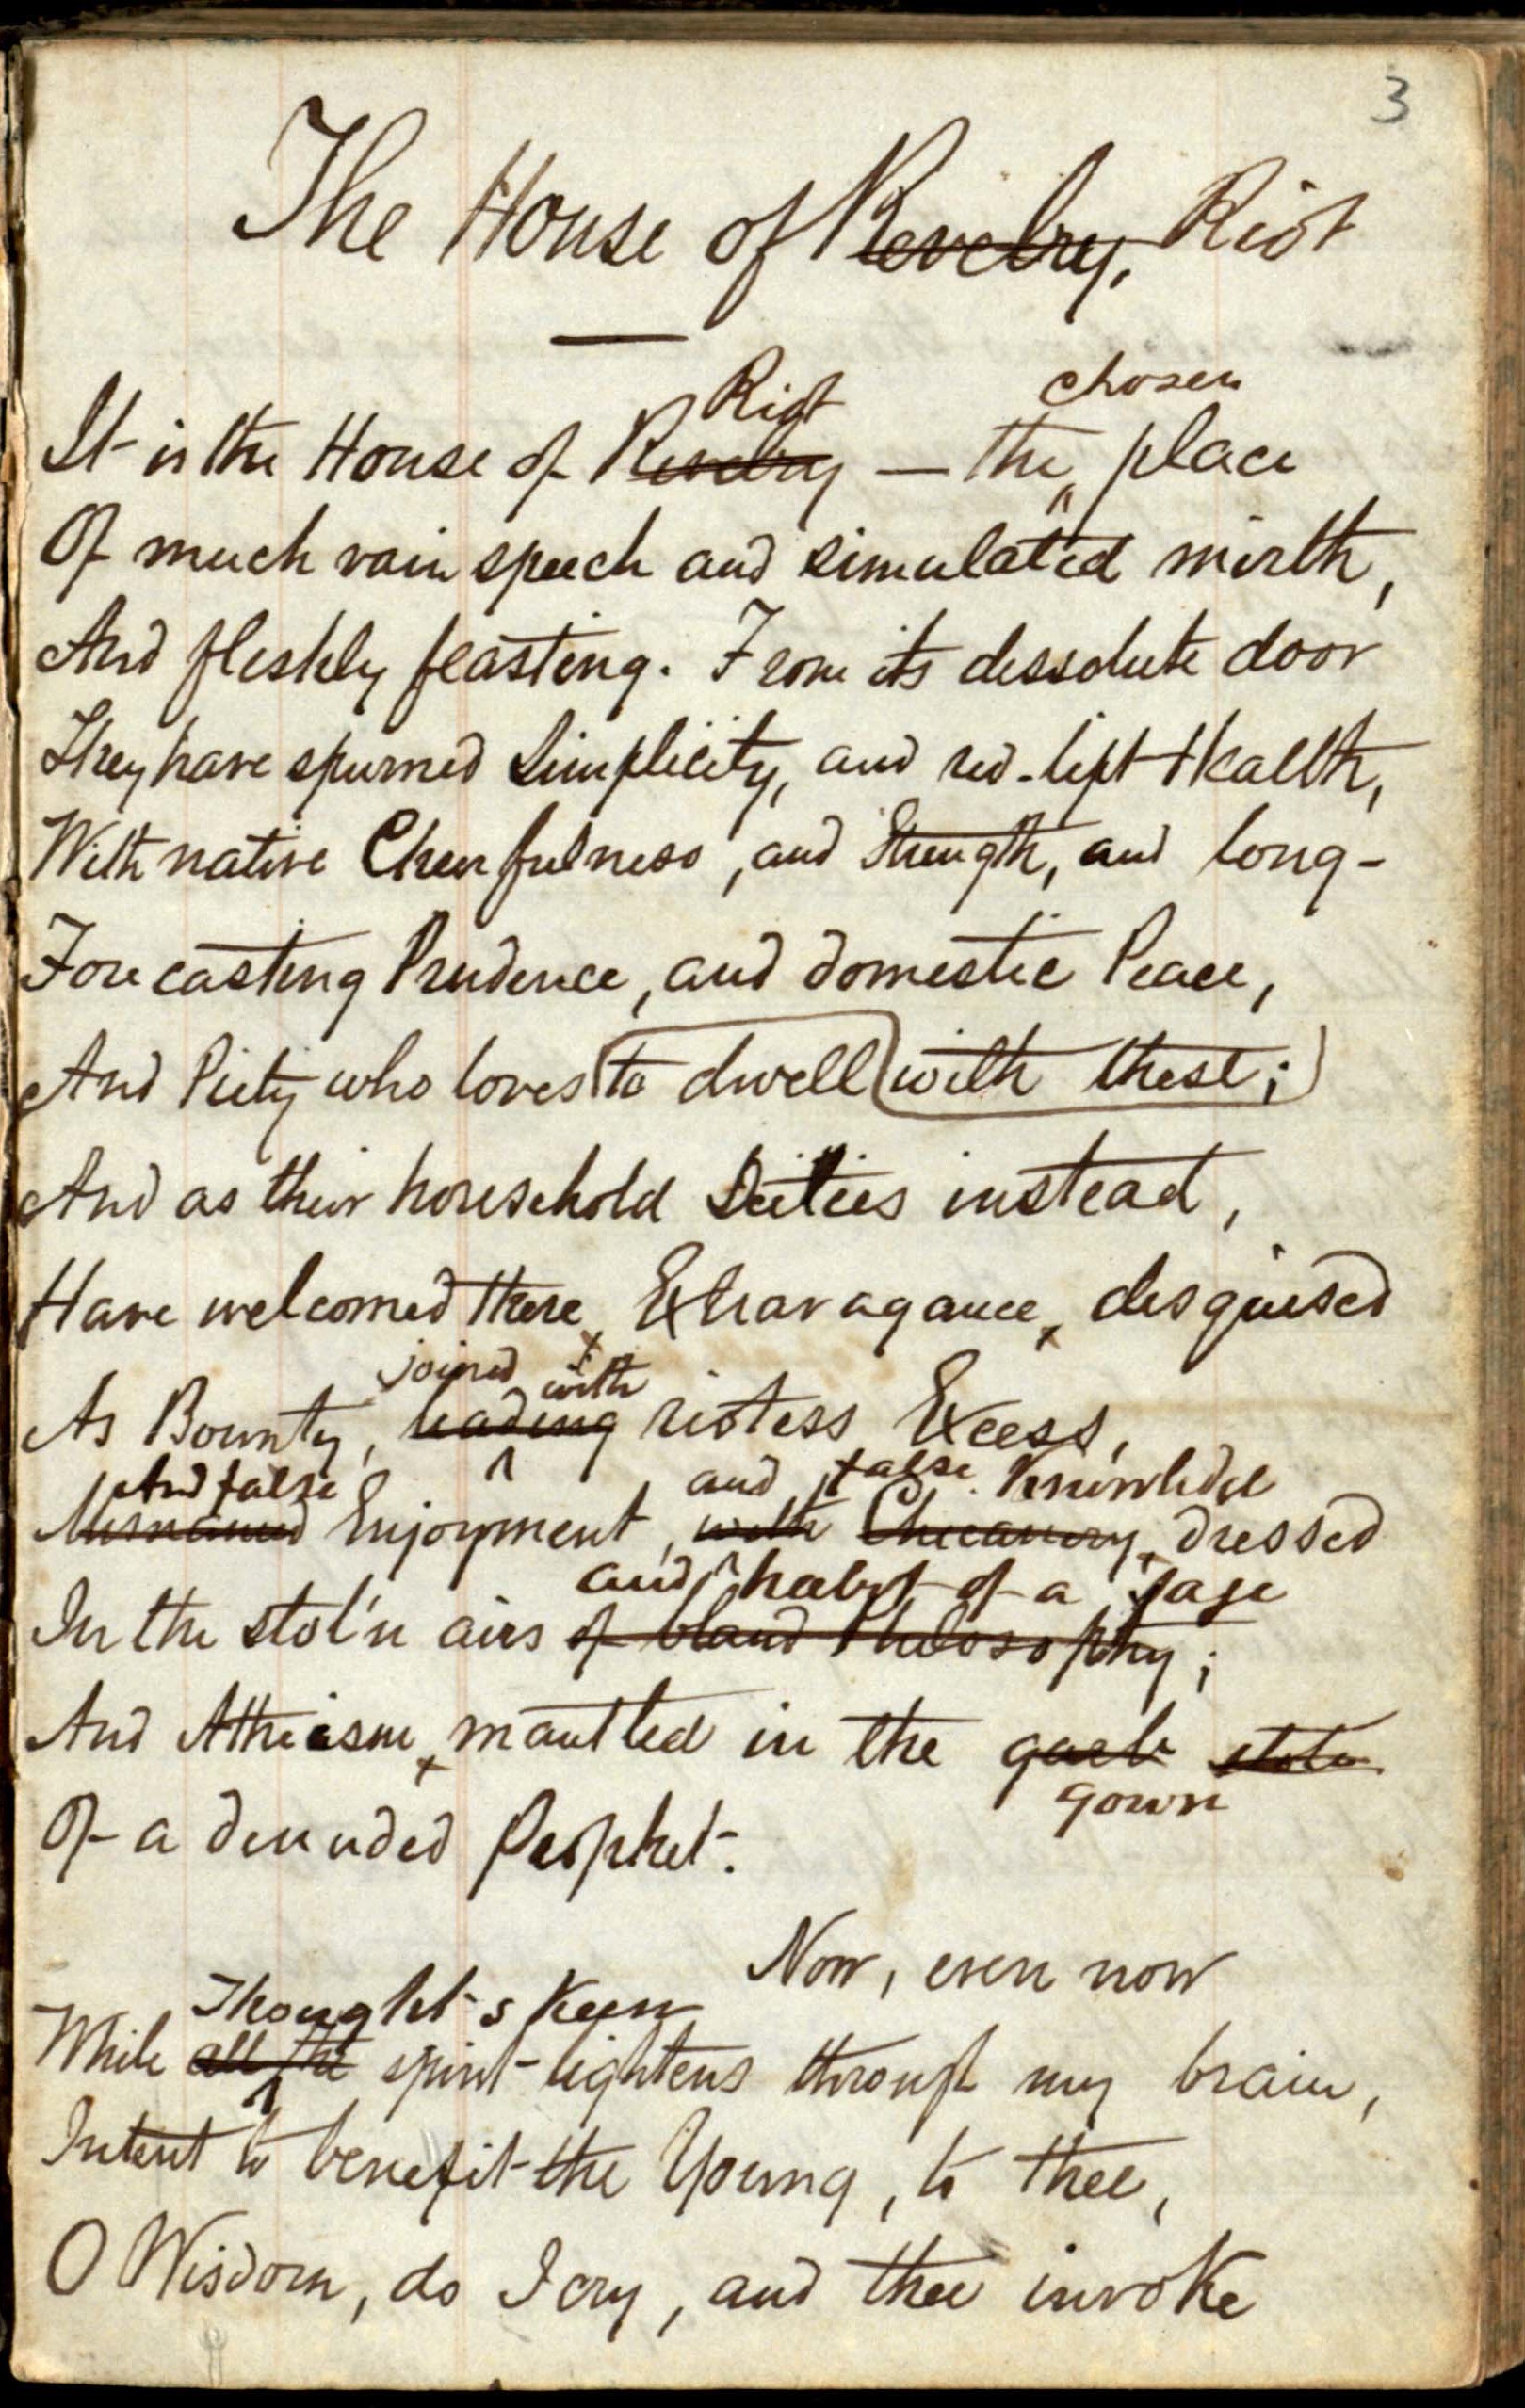 3
The House of Revelry, Riot
Riot chosen
It is the House of Revelry — the place
Of much vain speech and simulated mirth,
And fleshly feasting. From its dissolute door
They have spurned Simplicity, and red-lipt Health,
With native Cheerfulness, and Strength, and long-
Forecasting Prudence, and domestic Peace,
And Piety who loves to dwell with these;
And as their household Deities instead,
Have welcomed there Extravagance, disguised
joined with
As Bounty, leading riotess Excess,
And false and false Knowledge
Misnamed Enjoyment, with Chicanery, dressed
and habit of a Sage
In the stol'n airs of bland Philosophy;
And Atheism, mantled in the garb stole
gown
Of a denuded Prophet.
Now, even now
Thought's keen
While all the spirit lightens through my brain,
Intent to benefit the Young, to thee,
O Wisdom, do I cry, and thee invoke